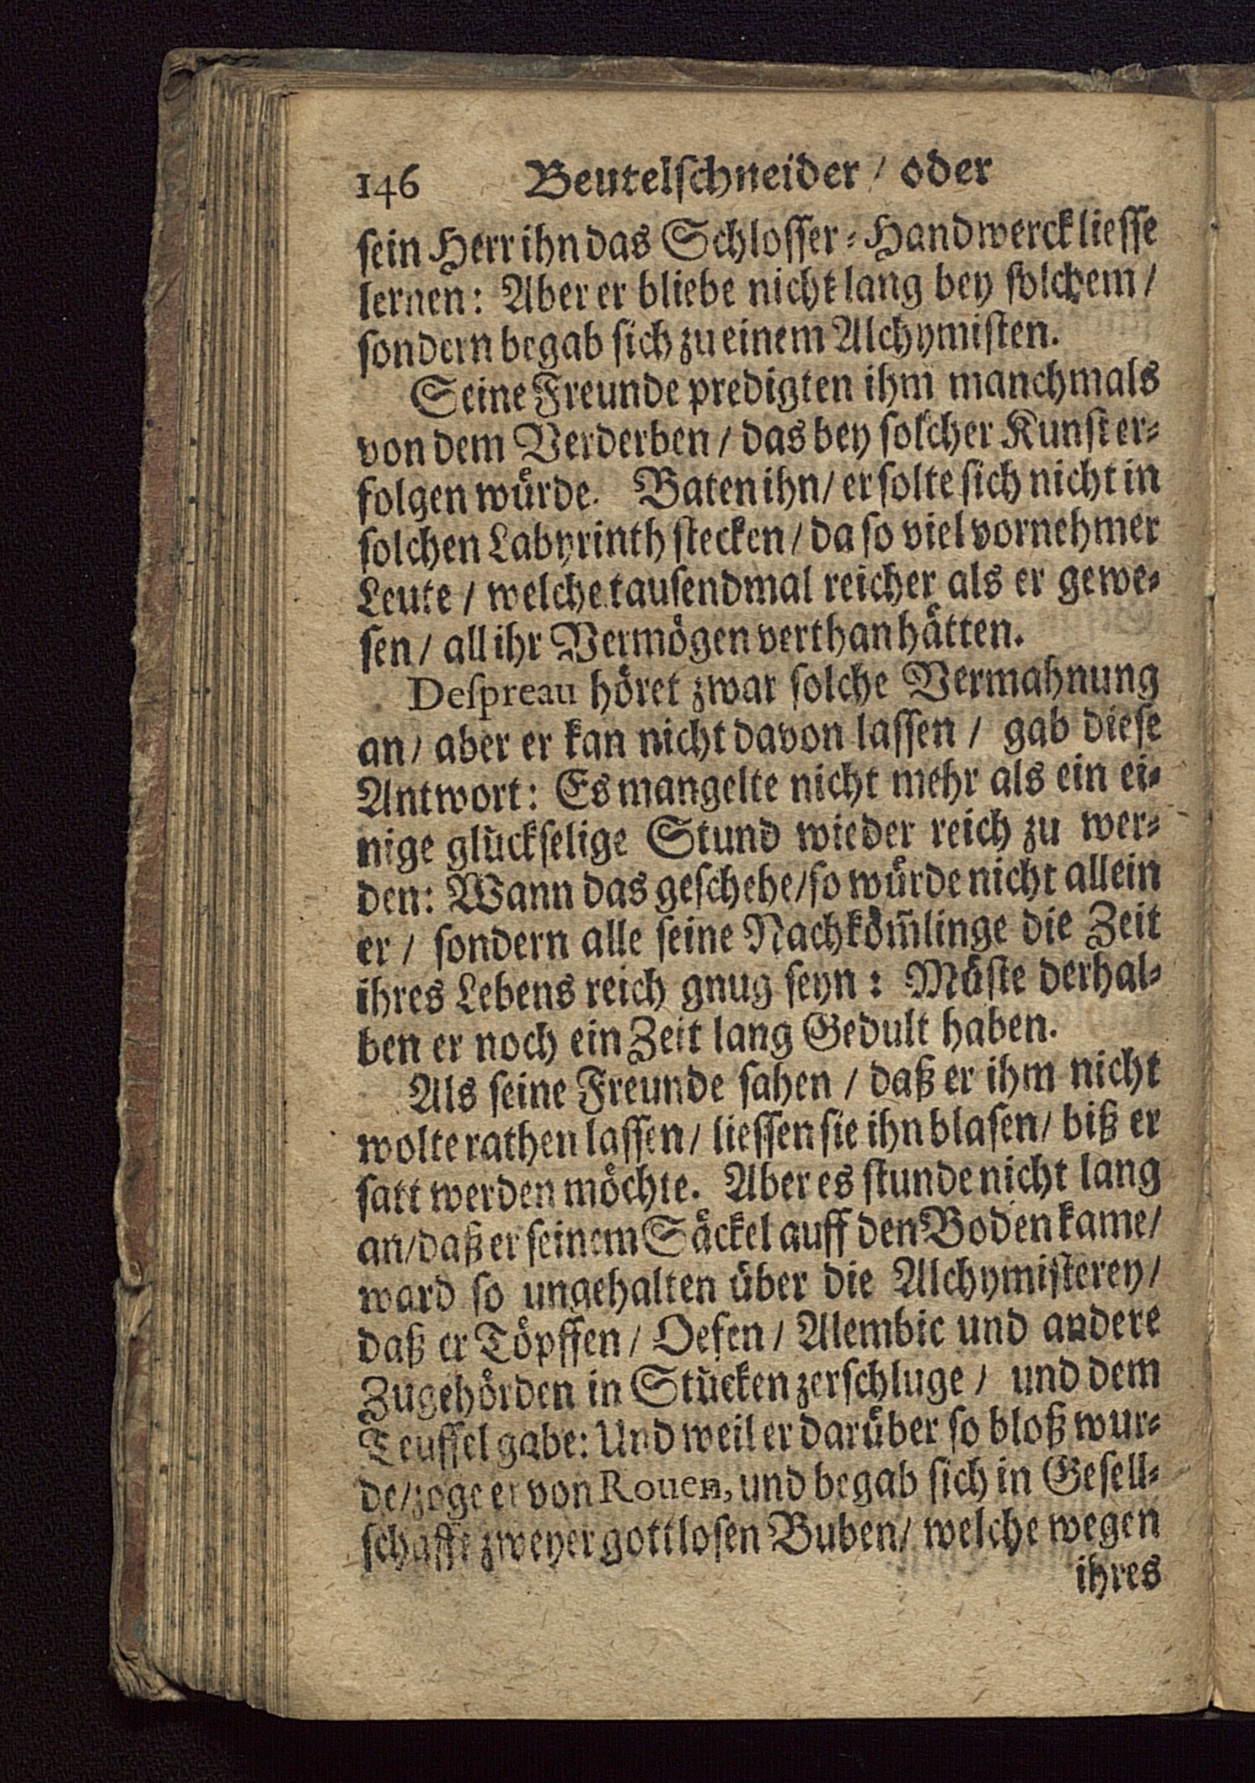 146 Beutelschneider / oder
sein Herr ihn das Schlosser-Handwerck liesse
lernen: Aber er bliebe nicht lang bey solchem /
sondern begab sich zu einem Alchymisten.
Seine Freunde predigten ihm manchmals
von dem Verderben / das bey solcher Kunst er-
folgen wuͤrde. Baten ihn / er solte sich nicht in
solchen Labyrinth stecken / da so viel vornehmer
Leute / welche tausendmal reicher als er gewe-
sen / all ihr Vermoͤgen verthan haͤtten.
Despreau hoͤret zwar solche Vermahnung
an / aber er kan nicht davon lassen / gab diese
Antwort: Es mangelte nicht mehr als ein ei-
nige gluͤckselige Stund wieder reich zu wer-
den: Wann das geschehe / so wuͤrde nicht allein
er / sondern alle seine Nachkoͤm̃linge die Zeit
ihres Lebens reich gnug seyn: Muͤste derhal-
ben er noch ein Zeit lang Gedult haben.
Als seine Freunde sahen / daß er ihm nicht
wolte rathen lassen / liessen sie ihn blasen / biß er
satt werden moͤchte. Aber es stunde nicht lang
an / daß er seinem Saͤckel auff den Boden kame /
ward so ungehalten uͤber die Alchymisterey /
daß er Toͤpffen / Oefen / Alembic und andere
Zugehoͤrden in Stuͤcken zerschluge / und dem
Teuffel gabe: Und weil er daruͤber so bloß wur-
de / zoge er von Rouen, und begab sich in Gesell-
schafft zweyer gottlosen Buben / welche wegen
ihres